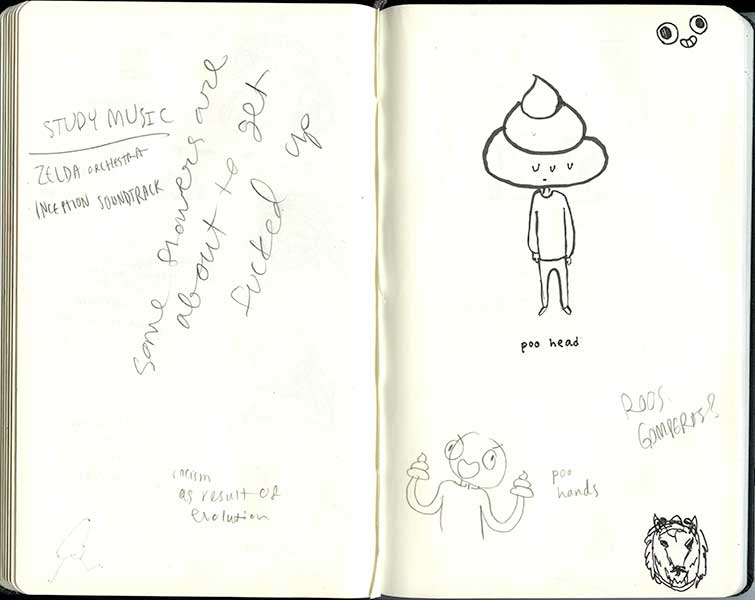 STUDY MUSIC
ZELDA ORCHESTRA
INCEPTION SOUNDTRACK
some flowers are
about to get
fucked up
racism
as result of
evolution
poo head
ROOS.
GOMPERTS?
poo
hands